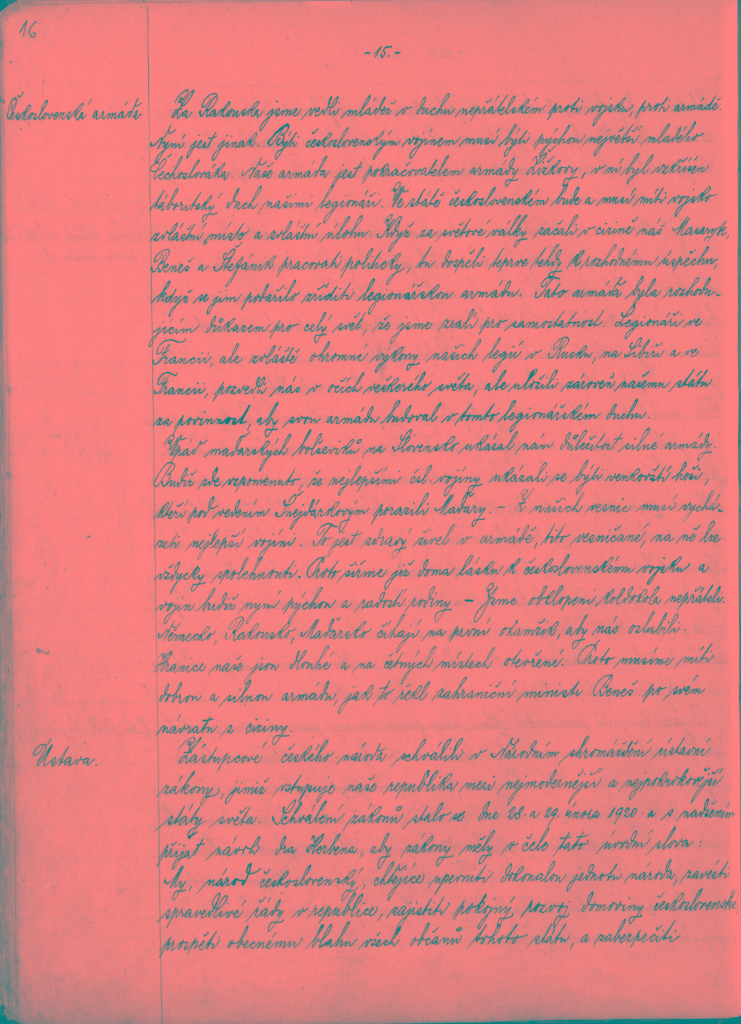 16
-15.-
Československá armáda
Za Rakouska jsme vedli mládež v duchu nepřátelském proti vojsku, proti armádě.
Nyní jest jinak. Býti československým vojínem musí býti pýchou největší mladého
Čechoslováka. Naše armáda jest pokračovatelem armády Žižkovy, v ní byl vzkříšen
táboritský duch našimi legionáři. Ve státě československém bude a musí míti vojsko
zvláštní místo a zvláštní úlohu. Když za světové války začali v cizině náš Masaryk,
Beneš a Štefánik pracovati politicky, tu dospěli teprve tehdy k rozhodnému úspěchu,
když se jim podařilo zříditi legionářskou armádu. Tato armáda byla rozhodu-
jícím důkazem pro celý svět, že jsme zralí pro samostatnost. Legionáři ve
Francii, ale zvláště ohromné výkony našich legií v Rusku, na Sibiři a ve
Francii, pozvedli nás v očích veškerého světa, ale uložili zároveň našemu státu
za povinnost, aby svou armádu budoval v tomto legionářském duchu.
Vpád maďarských bolševiků na Slovensko ukázal nám důležitost silné armády.
Budiž zde vzpomenuto, že nejlepšími čsl. vojíny ukázali se býti venkovští hoši,
kteří pod vedením Šnejdárkovým porazili Maďary. - Z našich vesnic musí vychá-
zeti nejlepší vojíni. To jest zdravý živel v armádě, tito vesničané, na ně lze
vždycky spolehnouti. Proto šiřme již doma lásku k československému vojsku a
vojín budiž nyní pýchou a radostí rodiny. - Jsme obklopeni koldokola nepřáteli.
Německo, Rakousko, Maďarsko číhají na první okamžik, aby nás oslabili.
Hranice naše jsou dlouhé a na četných místech otevřené. Proto musíme míti
dobrou a silnou armádu, jak to řekl zahraniční ministr Beneš po svém
návratu z ciziny.
Ústava.
Zástupcové českého národa schválili v Národním shromáždění ústavní
zákony, jimiž vstupuje naše republika mezi nejmodernější a nejpokrokovější
státy světa. Schválení zákonů stalo se dne 28. a 29. února 1920 a s nadšením
přijat návrh dra Herbena, aby zákony měly v čele tato úvodní slova:
My, národ československý, chtějíce upevniti dokonalou jednotu národa, zavésti
spravedlivé řády v republice, zajistiti pokojný rozvoj domoviny československé,
prospěti obecnému blahu všech občanů tohoto státu, a zabezpečiti